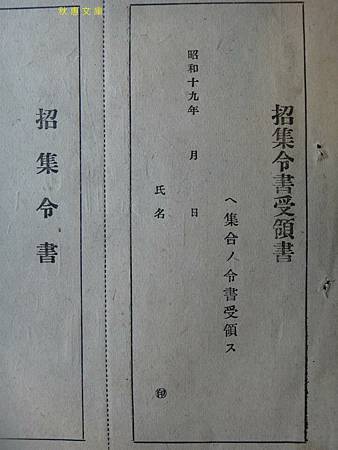 秋惠文庫
招集令書受領書
ヘ集合ノ令書受領ス
昭和十九年 月 日
氏名 ㊞
招集令書